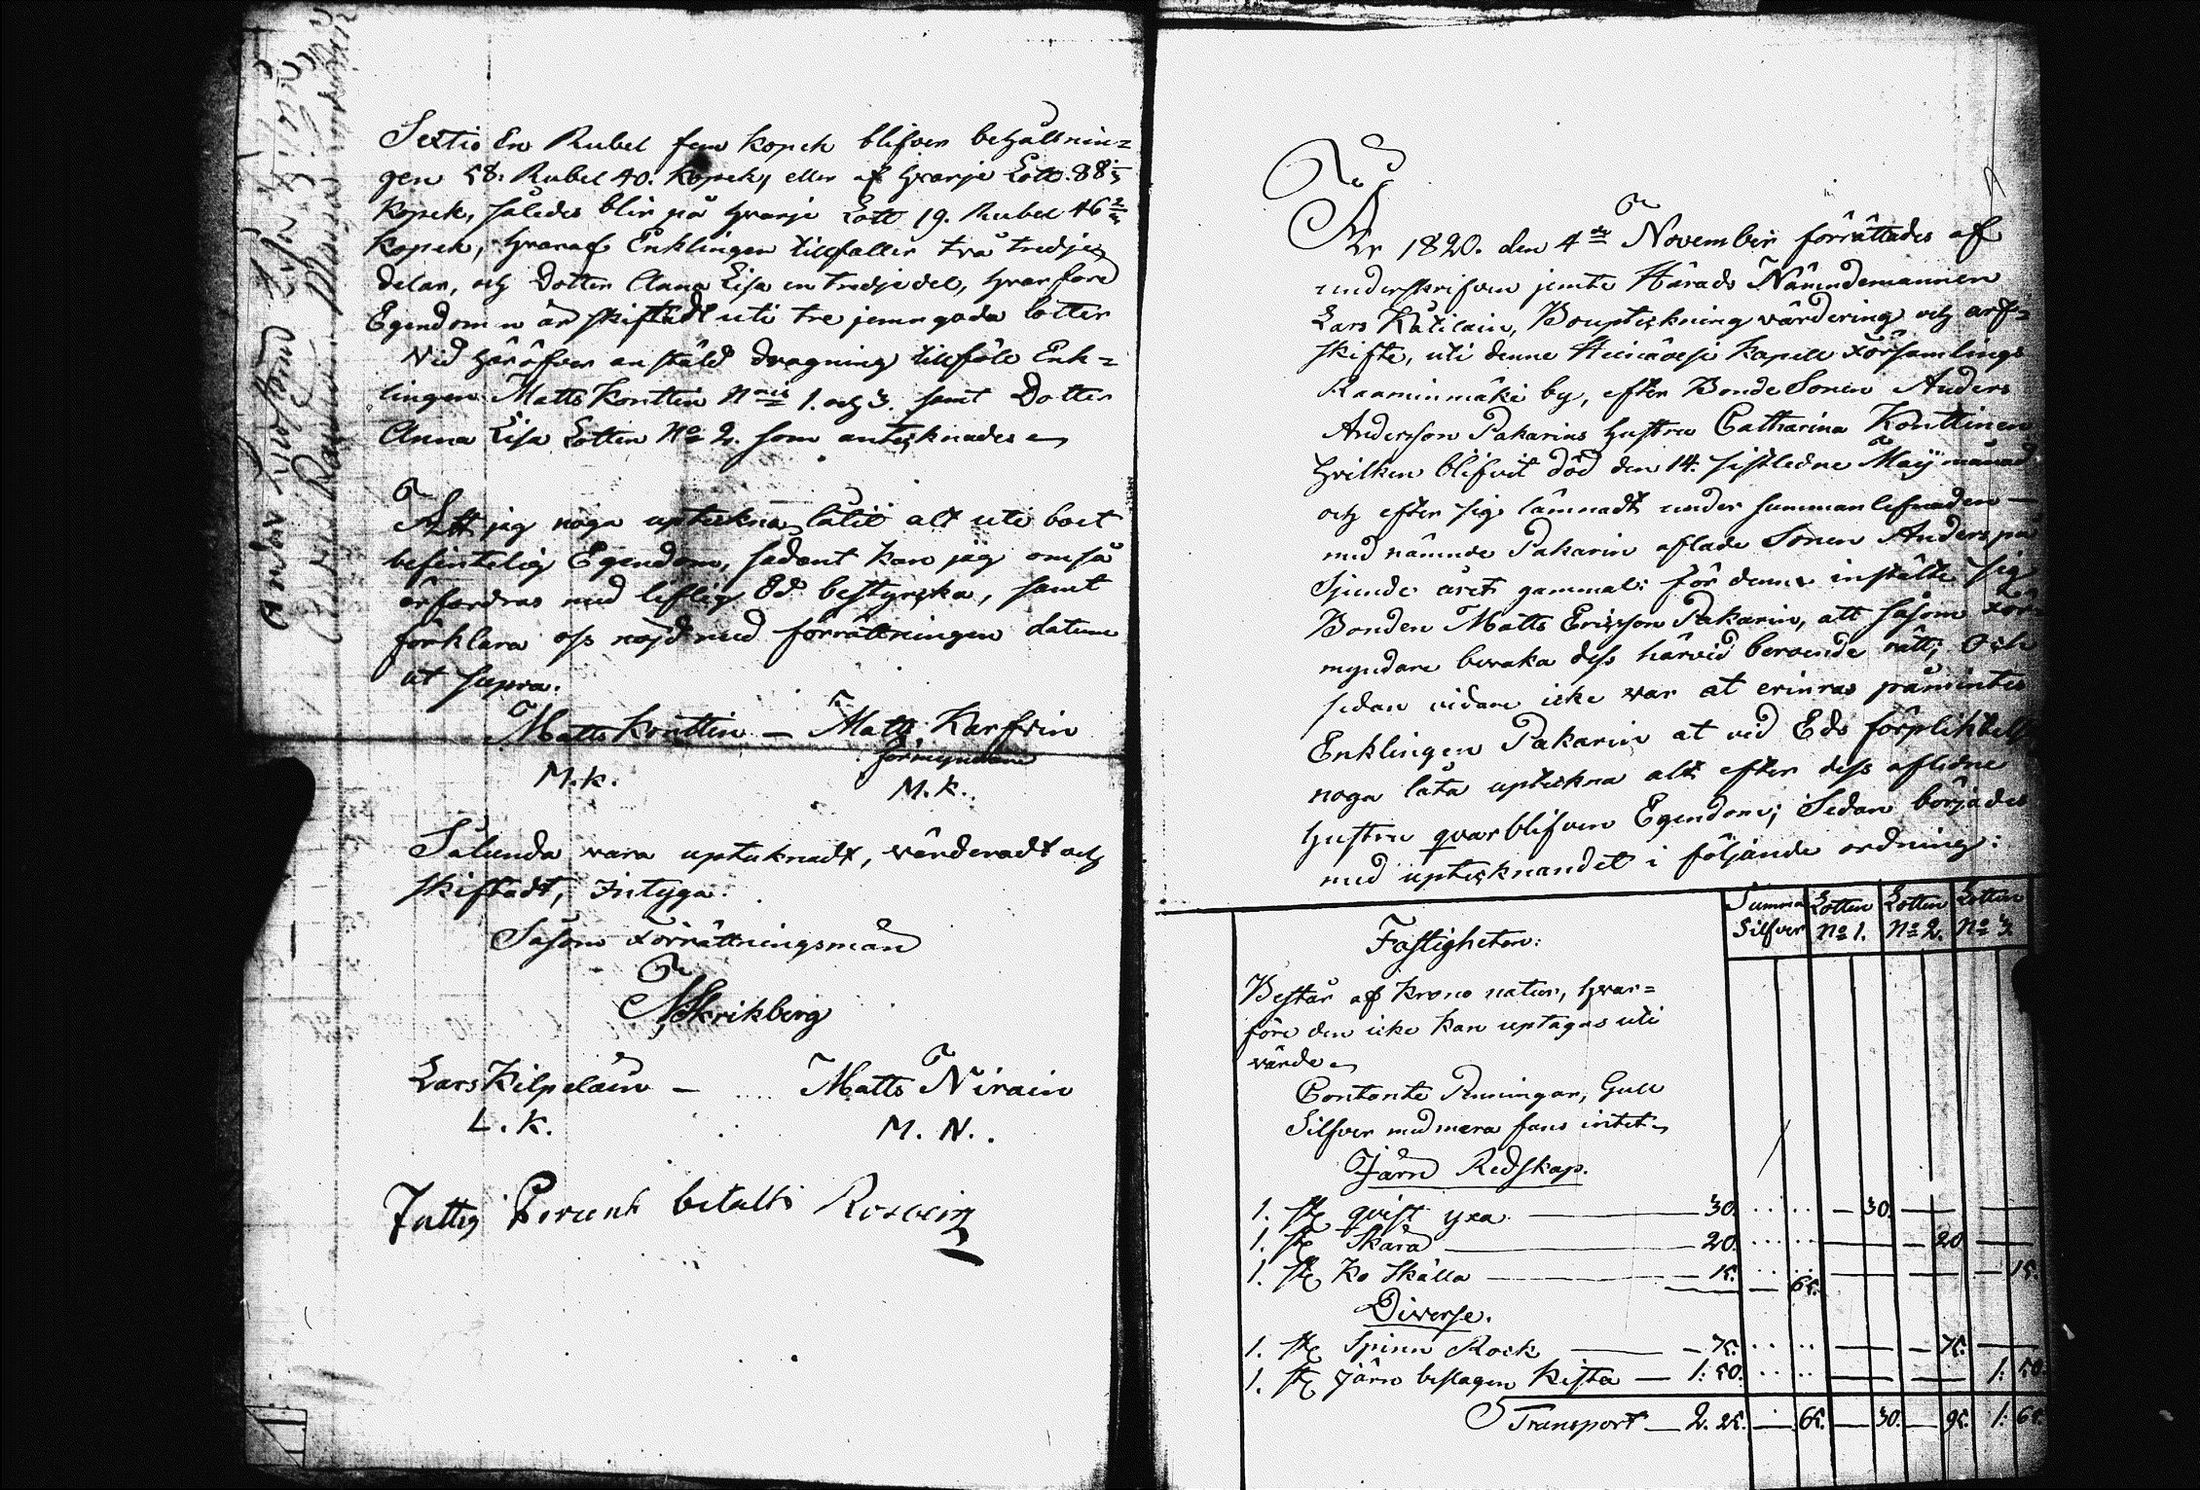 Sextio En Rubel fem kopek blifver behållnin=
gen 58. Rubel 40. kopek, eller af hvarje Lott. 88 1/3
kopek, således blir på hvarje Lott 19. Rubel 46 2/3
kopek, hvaraf Enklingen tillfaller två tredje
delar, och Dotter Anna Lisa en tredjedel, hvarföre
Egendomen är skiftadt uti tre jemngoda lotter
Vid häröfver anstäld dragning tillföll Enk=
lingen Matts Konttin N:ris 1. och 3. samt Dotter
Anna Lisa Lotten No 2. som antecknades
Att jag noga uptekna låtit alt uti boet
befintelig Egendom, sådant kan jag om så
ärfordras med liflig Ed bestyrcka, samt
förklara oss nöjd med förrättningen datum
ut supra.
Matts Konttin — Matts Karfvin
förmyndare
M.K. M.K.
Sålunda vara uptecknadt, värderadt och
skiftadt, Intyga:
Såsom Förrättningsmän
Skrikberg
Lars Kilpeläin — Matts Nirain
L.K. M.N.
Fattig Procent betalts
År 1820. den 4de November förrättades af
underskrifven jemte Härads Nämndemannen
Lars Kätilain, Bouptekning värdering och arf=
skifte, uti denne Heinävesi Kapell Församlings
Raaminmäki by, efter Bonde Sonen Anders
Andersson Pakarins hustru Catharina Konttinen
hvilken blifvit död den 14. sistledne Maij månad
och efter sig lämnadt under sammanlefnaden —
med nämnde Pakarin aflade Sonen Anders på
Sjunde året gammal: för denne instälte sig
Bonden Matts Ericsson Pakarin, att såsom För=
myndare bevaka dess härvid beroende rätt; Och
sedan vidare icke var at erinras påmintes
Enklingen Pakarin at vid Eds förpliktelse
noga låta uptekna alt efter dess aflidne
hustru qvarblifven Egendom; Sedan börjades
med uptecknandet i följande ordning:
Summa Silfver Lotten No 1. Lotten No 2. Lotten No 3.
Fastigheten:
Består af krono natur, hvar=
före den icke kan uptagas uti
värde
Contante Penningar, Gull
Silfver med mera fans intet
Järn Redskap.
1. st qvist yxa — 30. — 30. — —
1. st Skära — 20. — — 20 —
1. st Ko skälla — 15. — 65. — — 15.
Diverse.
1. st Spinn Rock — 75. — — 75. —
1. st Järn beslagen kista — 1: 50. — — 1: 50.
Transport — 2. 25. — 65. — 30. — 95. 1: 65.